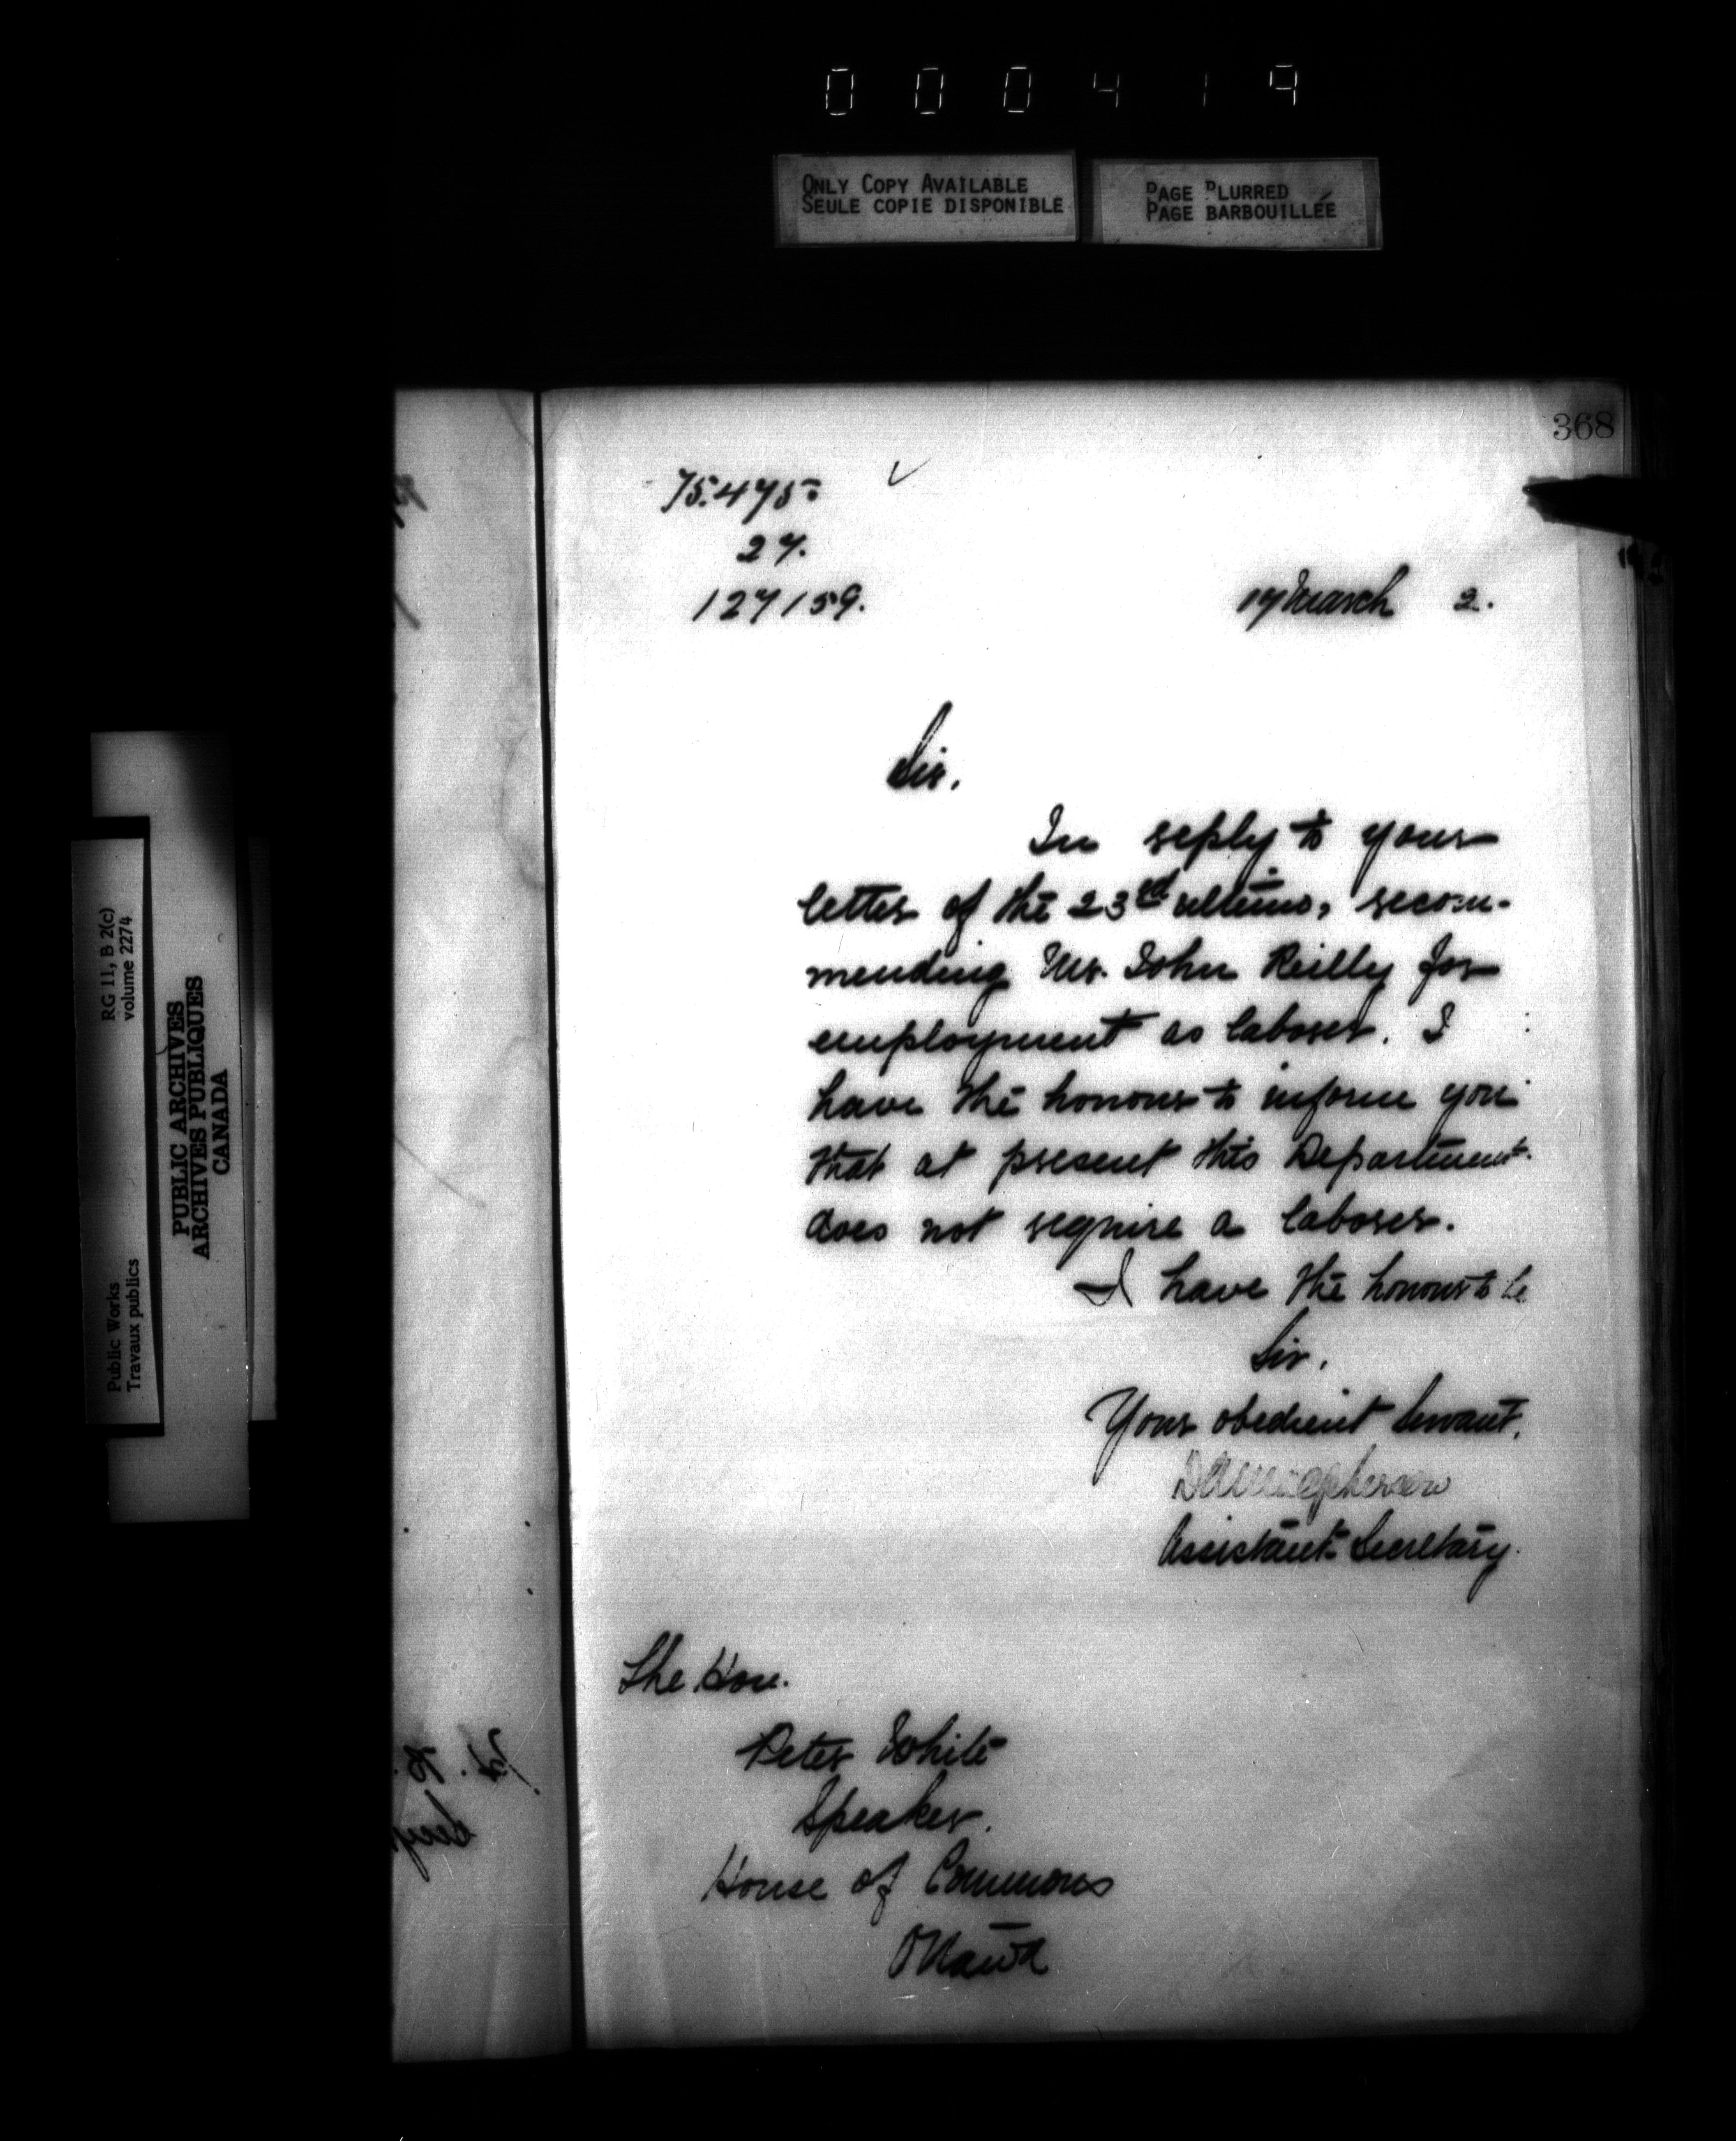 000419
ONLY COPY AVAILABLE
SEULE COPIE DISPONIBLE
PAGE BLURRED
PAGE BARBOUILLÉE
368
75.475.
27.
127159.
17 March 2.
Sir,
In reply to your
letter of the 23rd ultimo, recom-
mending Mr. John Reilly for
employment as laborer. I
have the honour to inform you
that at present this Department
does not require a laborer.
I have the honour to be
Sir,
Your obedient Servant,
D A Macpherson
Assistant Secretary.
The Hon.
Peter White
Speaker.
House of Commons
Ottawa
RG 11, B 2(c)
volume 2274
Public Works
Travaux publics
PUBLIC ARCHIVES
ARCHIVES PUBLIQUES
CANADA